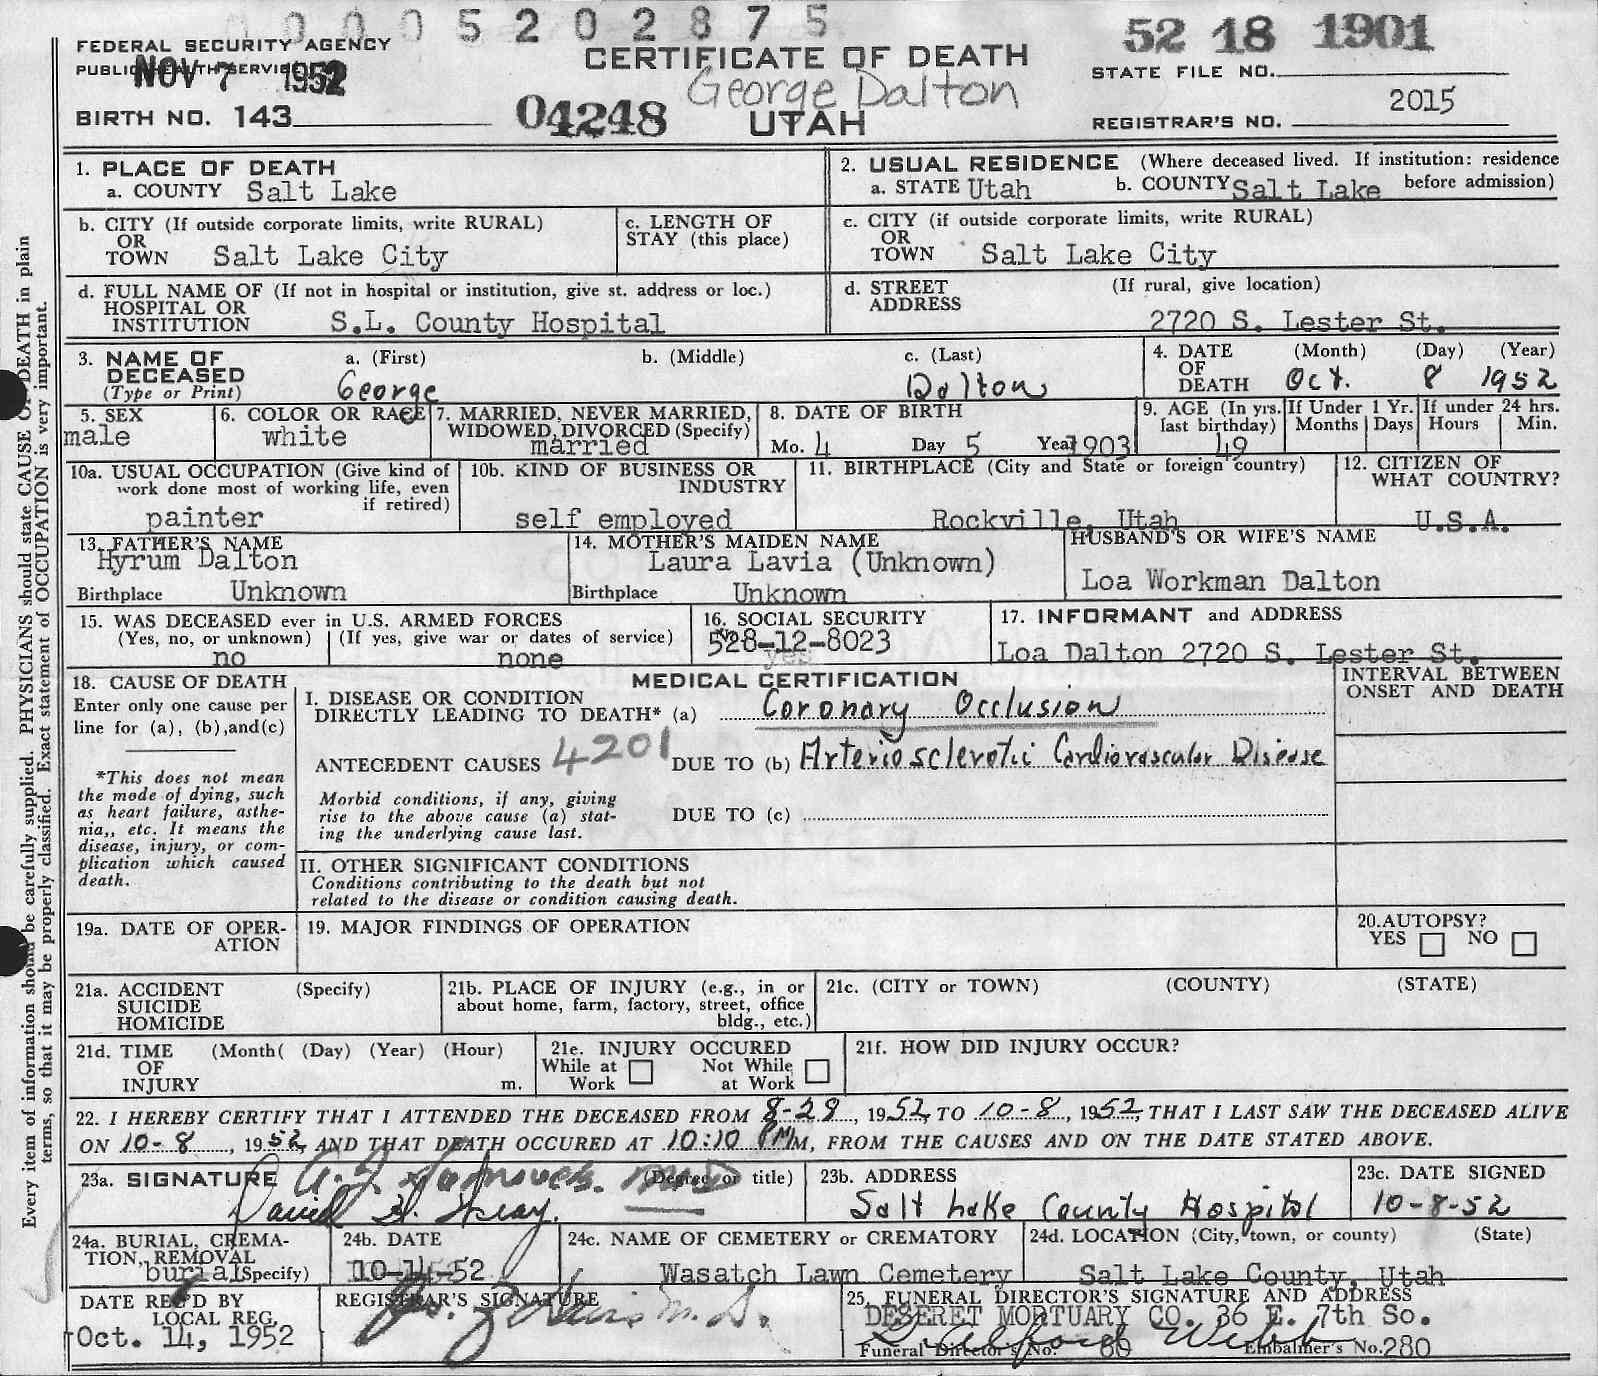 00005202875
52 18 1901
FEDERAL SECURITY AGENCY
PUBLIC HEALTH SERVICE
NOV 7 1952
CERTIFICATE OF DEATH
George Dalton
UTAH
STATE FILE NO.
BIRTH NO. 143
04248
2015
REGISTRAR'S NO.
1. PLACE OF DEATH
a. COUNTY Salt Lake
2. USUAL RESIDENCE (Where deceased lived. If institution: residence before admission)
a. STATE Utah b. COUNTY Salt Lake
b. CITY (If outside corporate limits, write RURAL)
OR
TOWN Salt Lake City
c. LENGTH OF
STAY (this place)
c. CITY (if outside corporate limits, write RURAL)
OR
TOWN Salt Lake City
d. FULL NAME OF (If not in hospital or institution, give st. address or loc.)
HOSPITAL OR
INSTITUTION S.L. County Hospital
d. STREET (If rural, give location)
ADDRESS
2720 S. Lester St.
3. NAME OF
DECEASED
(Type or Print)
a. (First) b. (Middle) c. (Last)
George Dalton
4. DATE (Month) (Day) (Year)
OF
DEATH Oct. 8 1952
5. SEX
male
6. COLOR OR RACE
white
7. MARRIED, NEVER MARRIED,
WIDOWED, DIVORCED (Specify)
married
8. DATE OF BIRTH
Mo. 4 Day 5 Year 1903
9. AGE (In yrs.
last birthday)
49
If Under 1 Yr.
Months Days
If under 24 hrs.
Hours Min.
10a. USUAL OCCUPATION (Give kind of
work done most of working life, even
if retired)
painter
10b. KIND OF BUSINESS OR
INDUSTRY
self employed
11. BIRTHPLACE (City and State or foreign country)
Rockville, Utah
12. CITIZEN OF
WHAT COUNTRY?
U.S.A.
13. FATHER'S NAME
Hyrum Dalton
Birthplace Unknown
14. MOTHER'S MAIDEN NAME
Laura Lavia (Unknown)
Birthplace Unknown
HUSBAND'S OR WIFE'S NAME
Loa Workman Dalton
15. WAS DECEASED ever in U.S. ARMED FORCES
(Yes, no, or unknown) (If yes, give war or dates of service)
no none
16. SOCIAL SECURITY
528-12-8023
yes
17. INFORMANT and ADDRESS
Loa Dalton 2720 S. Lester St.
18. CAUSE OF DEATH
Enter only one cause per
line for (a), (b),and(c)
*This does not mean
the mode of dying, such
as heart failure, asthe-
nia,, etc. It means the
disease, injury, or com-
plication which caused
death.
MEDICAL CERTIFICATION
INTERVAL BETWEEN
ONSET AND DEATH
I. DISEASE OR CONDITION
DIRECTLY LEADING TO DEATH* (a) Coronary Occlusion
ANTECEDENT CAUSES 4201 DUE TO (b) Arteriosclerotic Cardiovascular Disease
Morbid conditions, if any, giving
rise to the above cause (a) stat-
ing the underlying cause last.
DUE TO (c)
II. OTHER SIGNIFICANT CONDITIONS
Conditions contributing to the death but not
related to the disease or condition causing death.
19a. DATE OF OPER-
ATION
19. MAJOR FINDINGS OF OPERATION
20. AUTOPSY?
YES NO
21a. ACCIDENT (Specify)
SUICIDE
HOMICIDE
21b. PLACE OF INJURY (e.g., in or
about home, farm, factory, street, office
bldg., etc.)
21c. (CITY or TOWN) (COUNTY) (STATE)
21d. TIME (Month( (Day) (Year) (Hour)
OF
INJURY m.
21e. INJURY OCCURED
While at Not While
Work at Work
21f. HOW DID INJURY OCCUR?
22. I HEREBY CERTIFY THAT I ATTENDED THE DECEASED FROM 8-29, 1952, TO 10-8, 1952, THAT I LAST SAW THE DECEASED ALIVE
ON 10-8, 1952, AND THAT DEATH OCCURED AT 10:10 PM M, FROM THE CAUSES AND ON THE DATE STATED ABOVE.
23a. SIGNATURE (Degree or title)
M.D
David H.
23b. ADDRESS
Salt Lake County Hospital
23c. DATE SIGNED
10-8-52
24a. BURIAL, CREMA-
TION, REMOVAL
burial (Specify)
24b. DATE
10-11-52
24c. NAME OF CEMETERY or CREMATORY
Wasatch Lawn Cemetery
24d. LOCATION (City, town, or county) (State)
Salt Lake County, Utah
DATE REC'D BY
LOCAL REG.
Oct. 14, 1952
REGISTRAR'S SIGNATURE
M.D.
25. FUNERAL DIRECTOR'S SIGNATURE AND ADDRESS
DESERET MORTUARY CO. 36 E. 7th So.
Funeral Director's No. 60 Embalmer's No. 280
Every item of information should be carefully supplied. PHYSICIANS should state CAUSE OF DEATH in plain
terms, so that it may be properly classified. Exact statement of OCCUPATION is very important.